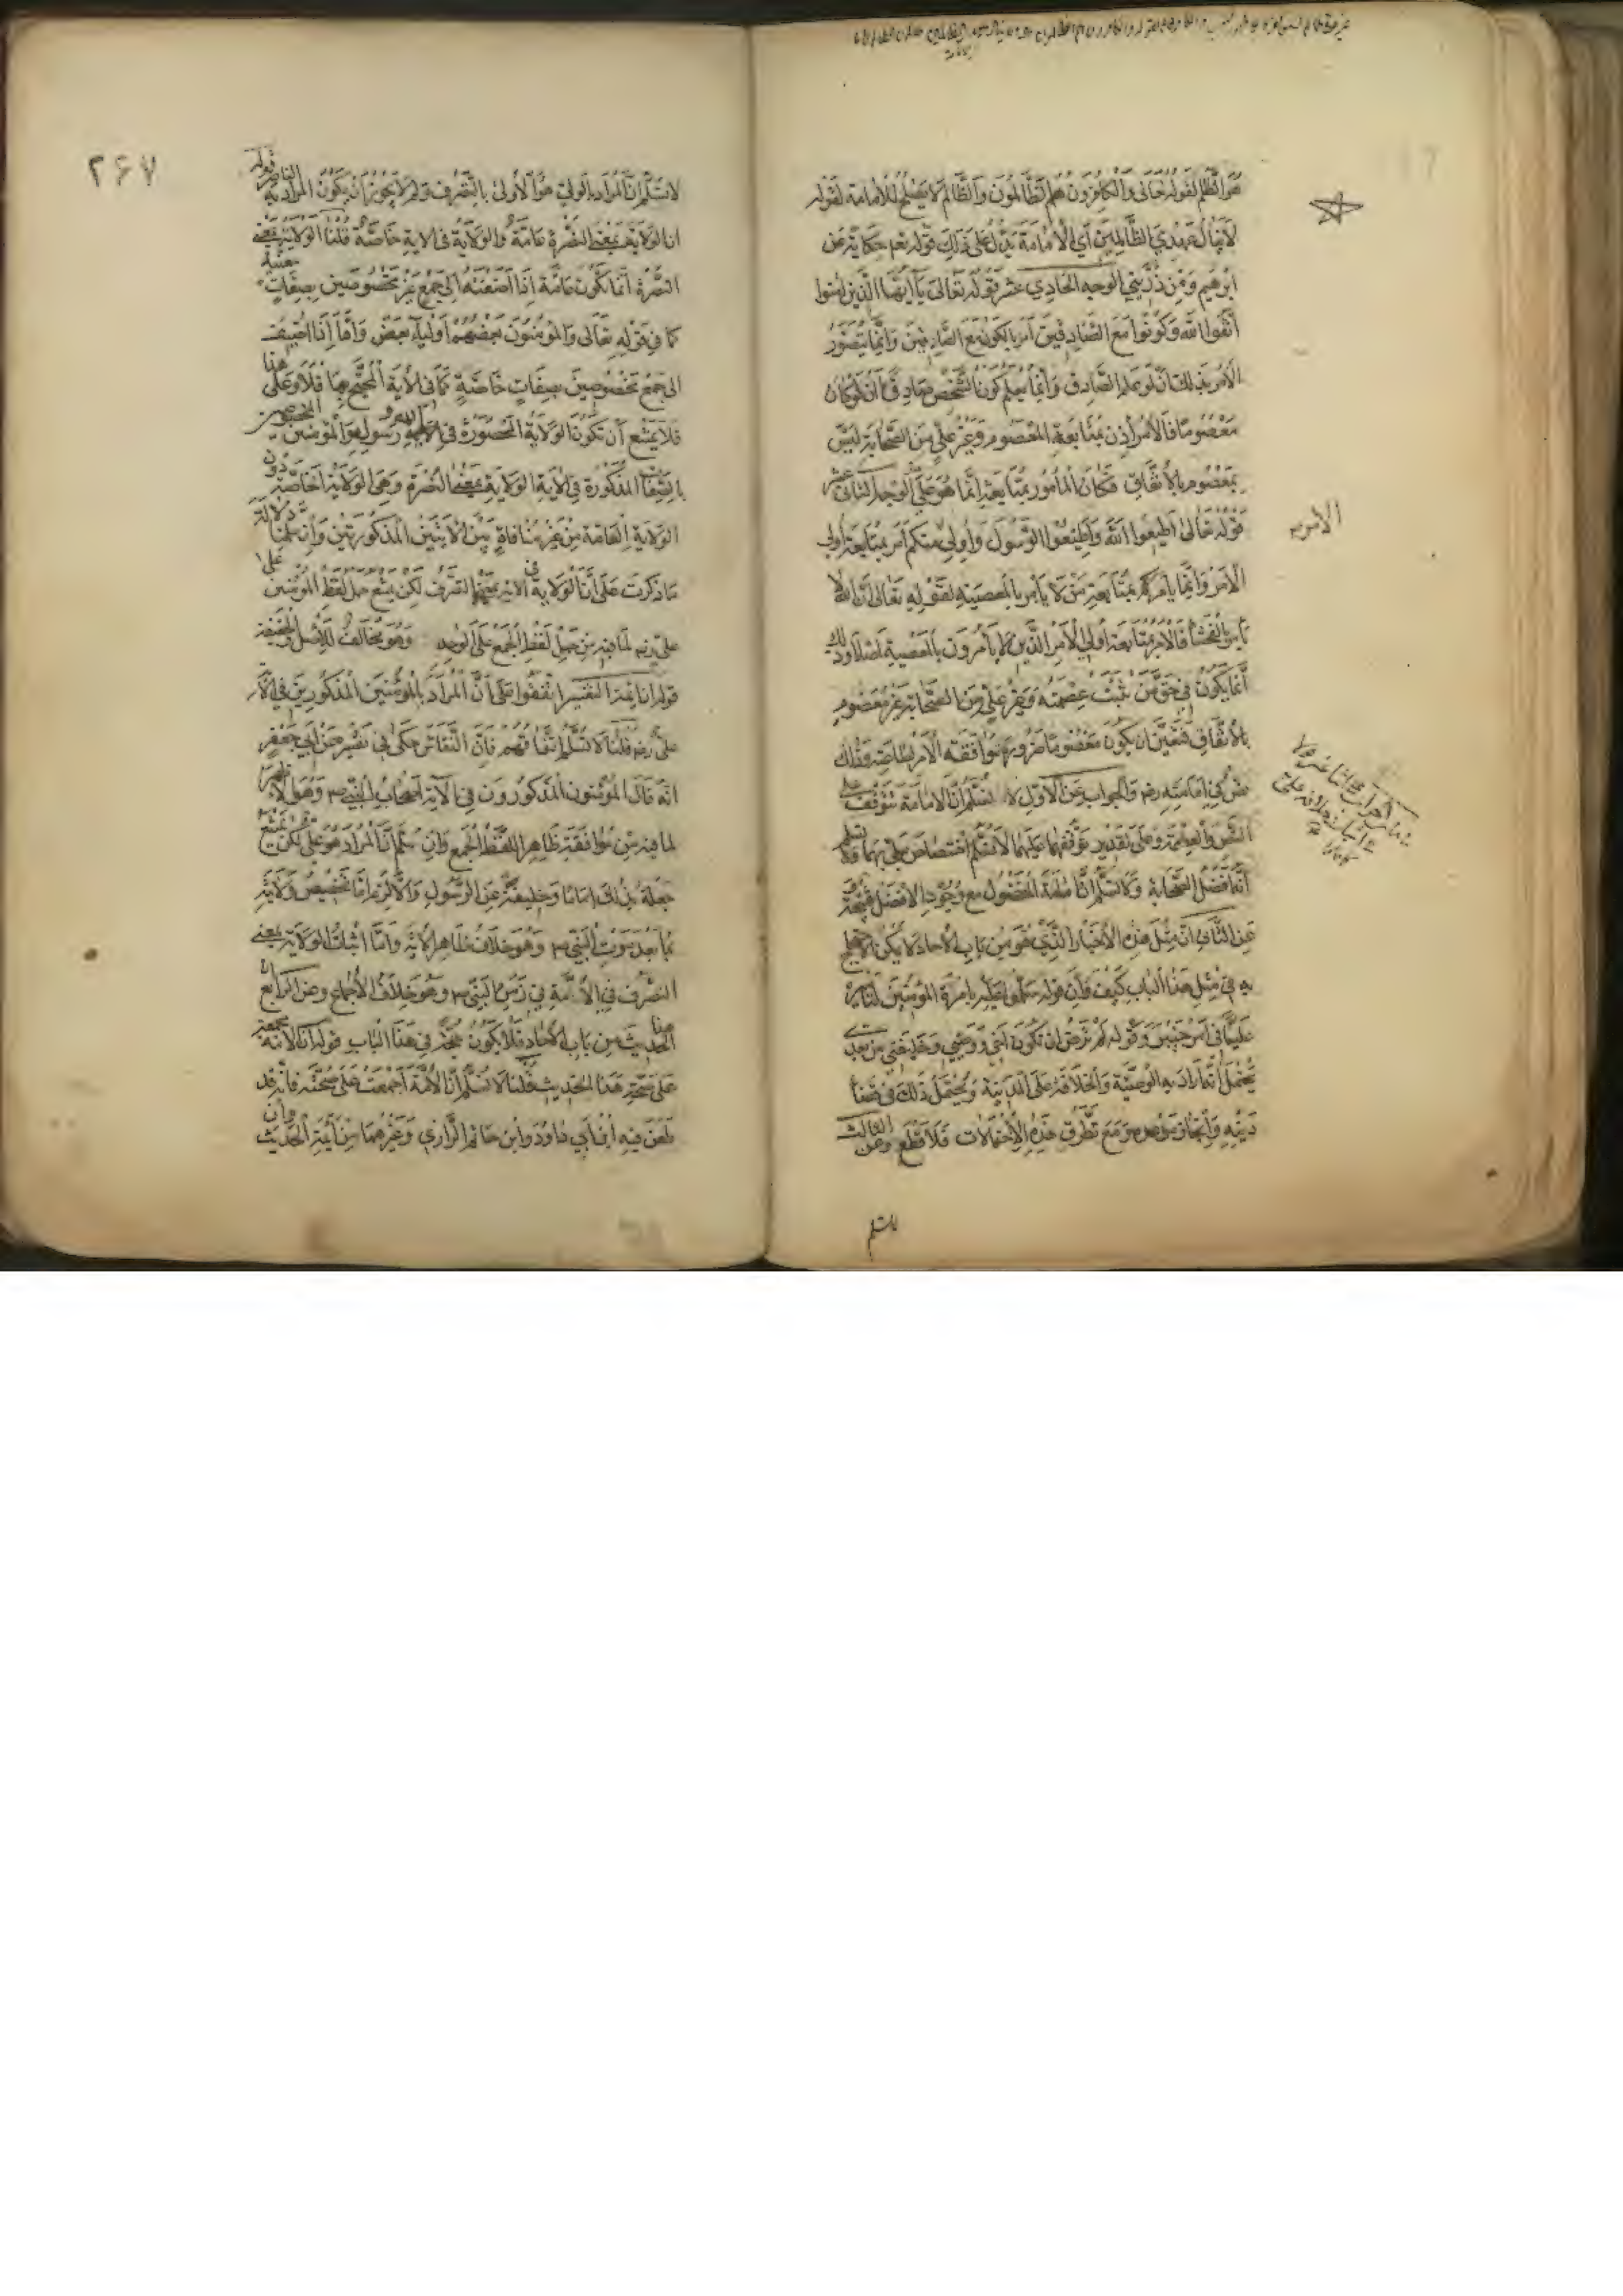 هو الظلم لقوله تعالى والكافرون هم الظالمون والظالم لا يصلح للامامة لقوله
لا ينال عهدي الظالمين اي الامامة يدل على ذلك قوله تعم حكاية عن
ابرهيم ومن ذريتي الوجه الحادي عشر قوله تعالى يا ايها الذين امنوا
اتقوا الله وكونوا مع الصادقين امر بالكون مع الصادقين وانما يتصور
الامر بذلك ان لو علم الصادق وانما يعلم كون الشخص صادقا ان لو كان
معصوما فالامر اذن بمتابعة المعصوم وغير علي من الصحابة ليس
بمعصوم بالاتفاق فكان المأمور بمتابعته انما هو علي الوجه الثاني عشر
قوله تعالى اطيعوا الله واطيعوا الرسول واولي منكم امر بمتابعة اولي
الامر
الامر وانما يأمركم بمتابعة من لا يأمر بالمعصية لقوله تعالى ان الله لا
يأمر بالفحشا فالامر بمتابعة اولي الامر الذين لا يأمرون بالمعصية اصلا وذلك
انما يكون في حق من ثبت عصمته وغير علي من الصحابة غير معصوم
بالاتفاق فتعين ان يكون معصوما ضرورة موافقته الامر بطاعته وذلك
نص في امامته رضه والجواب عن الاول لا نسلم ان الامامة تتوقف على
النص والعصمة وعلى تقدير توقفها عليهما لا نسلم اختصاص علي بهما ولا نسلم
انه افضل الصحابة ولا نسلم ان امامة المفضول مع وجود الافضل قبيحة
عن الثاني ان مثل هذه الاخبار التي هو من باب الاحاد لا يمكن الاحتجاج
به في مثل هذا الباب كيف وان قوله سلموا عليه بامرة المؤمنين
عليا في امر جيش وقوله لم ترض ان تكون اخي ووصيي وخليفتي من بعدي
يحتمل انه اراد به الوصية والخلافة على المدينة ويحتمل ذلك في قضا
دينه وانجاز موعده ومع تطرق هذه الاحتمالات فلا قطع وعن الثالث
لا نسلم
٢٦٧
لا نسلم ان المراد بالولي هو الاولى بالتصرف ولم لا يجوز ان يكون المراد به الناصر قوله
ان الولاية بمعنى النصرة عامة والولاية في الاية خاصة قلنا الولاية بمعنى
النصرة انما تكون عامة اذا اضفته الى جمع غير مخصوصين بصفات معينة
كما في قوله تعالى والمؤمنون بعضهم اولياء بعض واما اذا اضيف
الى جمع مخصوصين بصفات خاصة كما في الاية المحتج بها فلا وعلى هذا
فلا يمتنع ان تكون الولاية المحصورة في الله ورسوله والمؤمنين المخصوصين
بالصفات المذكورة في الاية الولاية بمعنى النصرة وهي الولاية الخاصة دون
الولاية العامة من غير منافاة بين الايتين المذكورتين وان سلمنا دلالة
ما ذكرت على ان الولاية في الاية بمعنى التصرف لكن يمتنع حمل لفظ المؤمنين على
علي رضه لما فيه من حمل لفظ الجمع على الواحد وهو مخالف للاصل والحقيقة
قوله ان ايمة التفسير اتفقوا على ان المراد بالمؤمنين المذكورين في الاية
علي رضه قلنا لا نسلم اتفاقهم فان النقاش حكى في تفسيره عن ابي جعفر
انه قال المؤمنون المذكورون في الاية اصحاب النبي ص وهو الاظهر
لما فيه من موافقة ظاهر اللفظ الجمع وان سلم ان المراد هو علي لكن يمتنع
جعله بذلك اماما وخليفة عن الرسول والا لزم اما تخصيص ولايته
بما بعد موت النبي ص وهو خلاف ظاهر الاية واما اثبات الولاية بمعنى
التصرف في الامة في زمن النبي ص وهو خلاف الاجماع وعن الرابع ان
هذا الحديث من باب الاحاد فلا يكون حجة في هذا الباب قوله ان الامة مجمعة
على صحة هذا الحديث قلنا لا نسلم ان الامة اجمعت على صحته فانه قد
طعن فيه ابن ابي داود وابن حاتم الرازي وغيرهما من ايمة الحديث وان